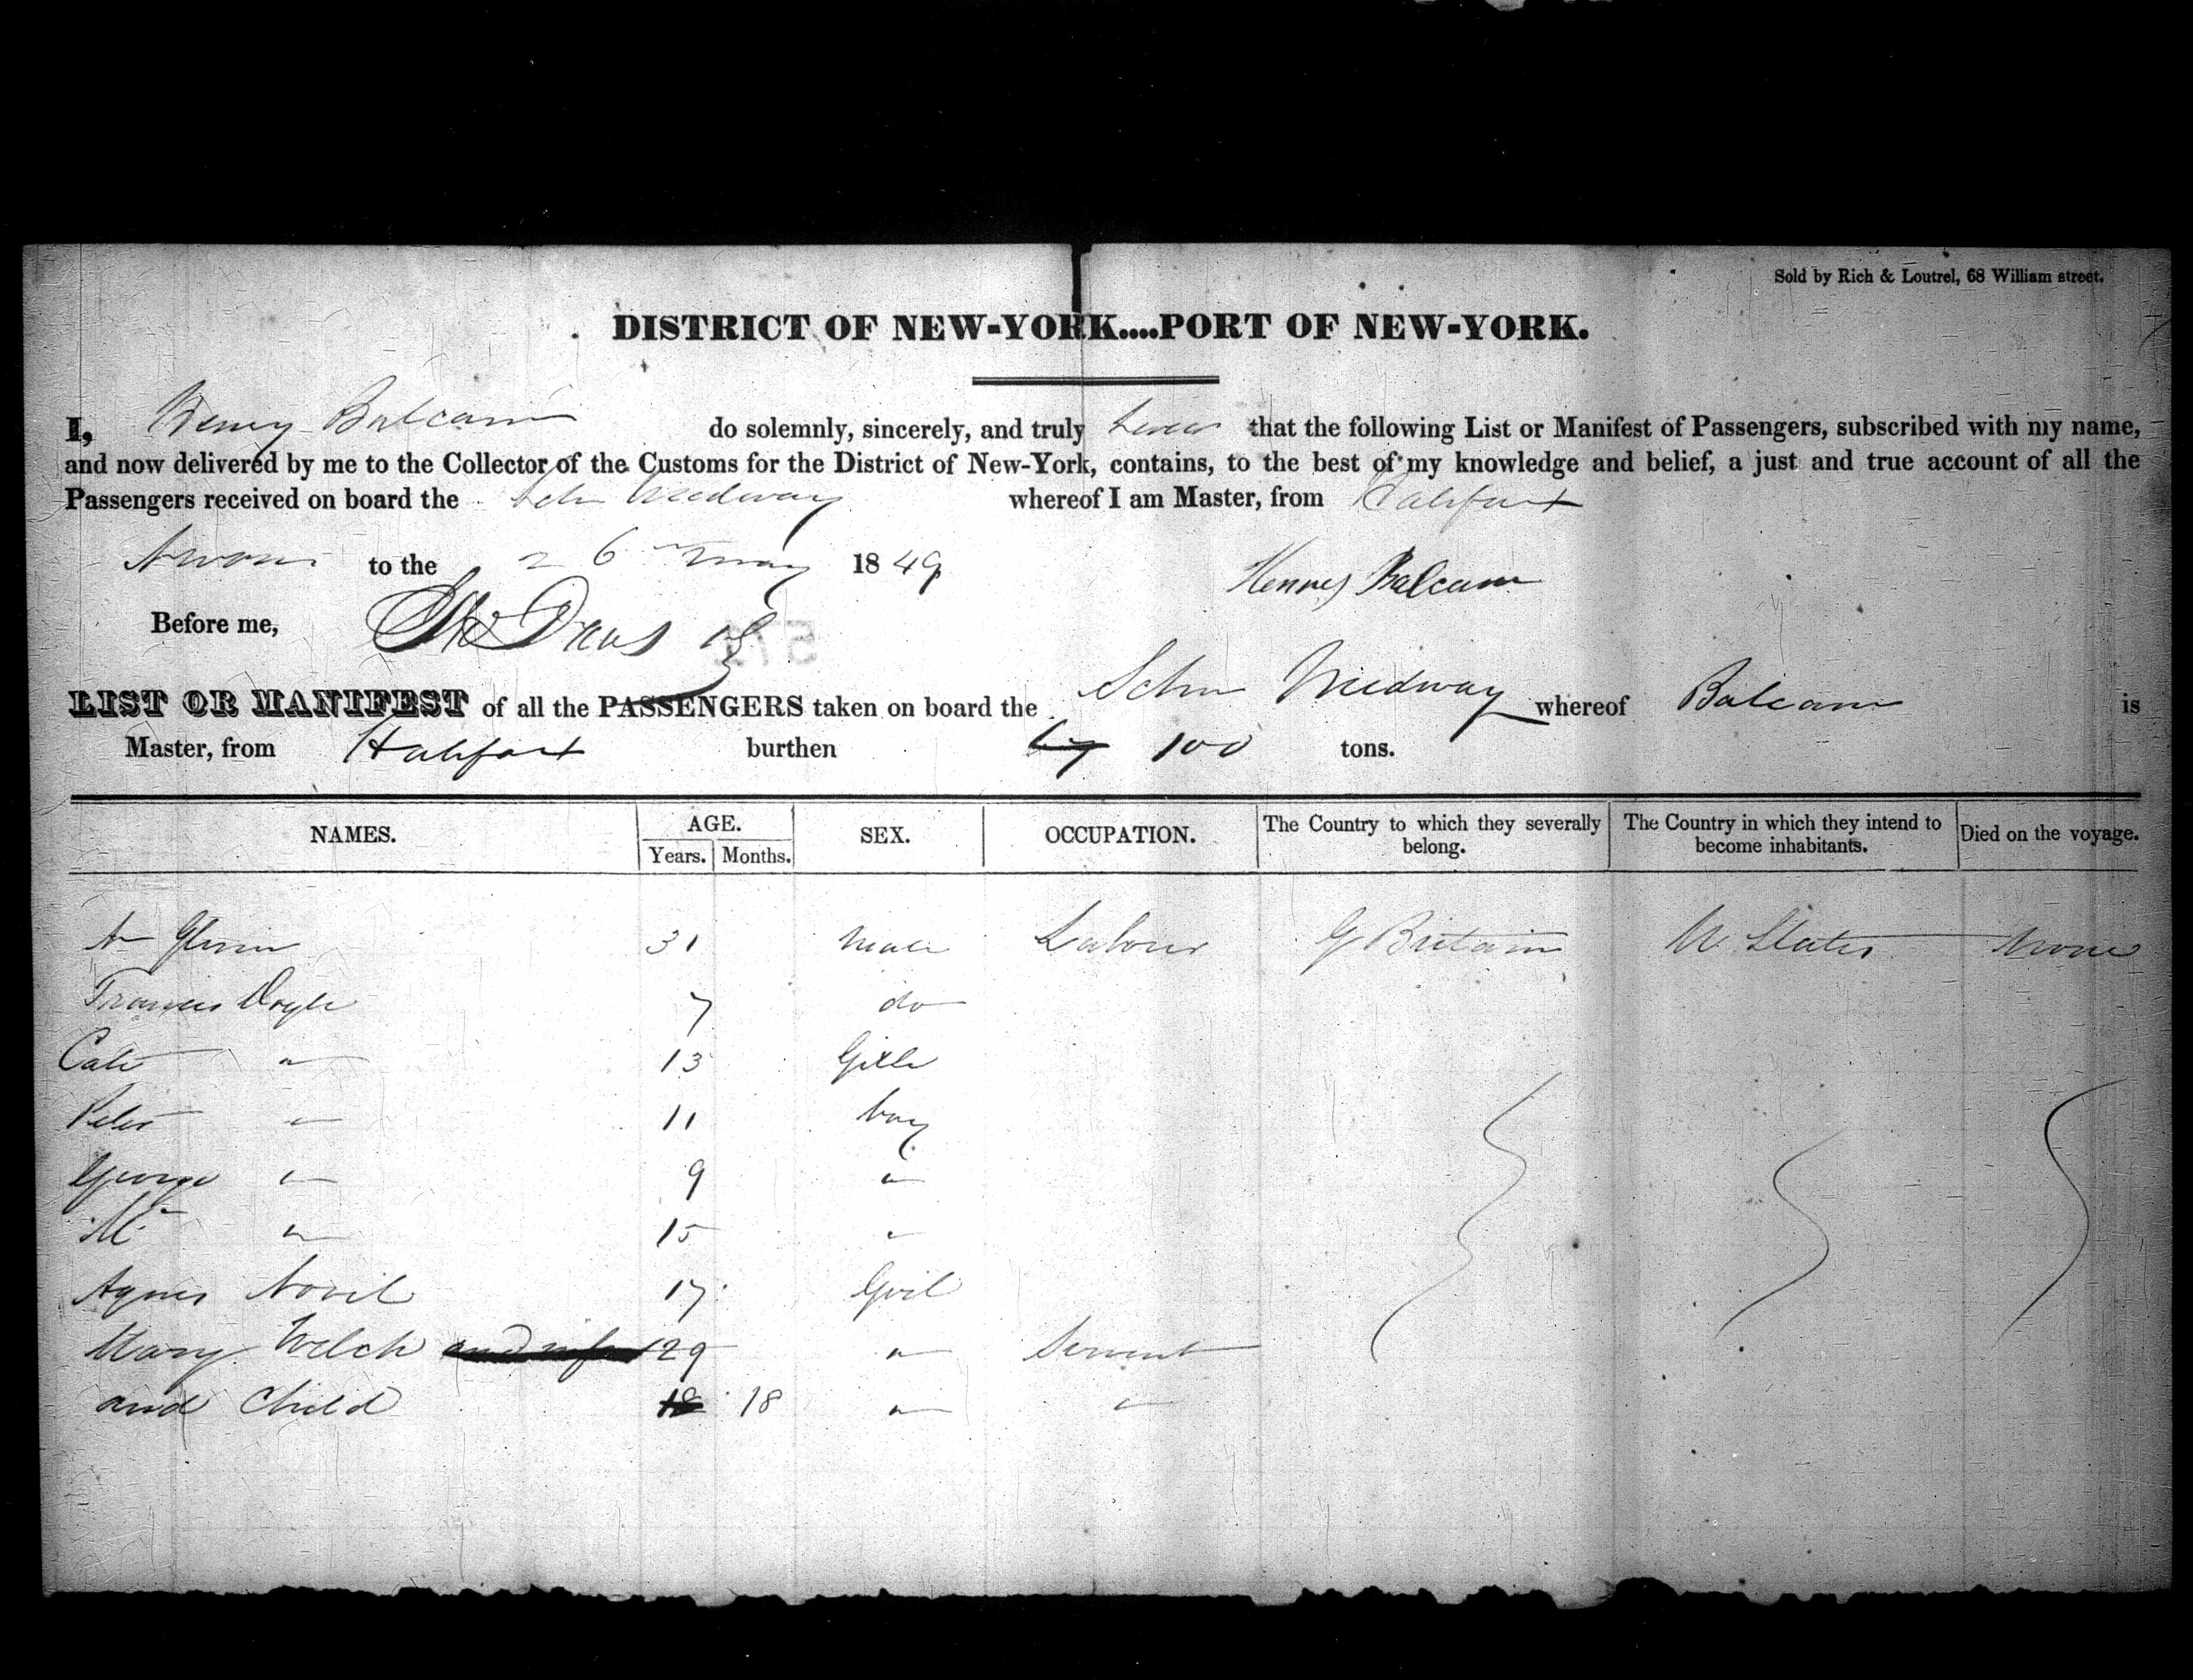 Sold by Rich & Loutrel, 68 William street.
DISTRICT OF NEW-YORK....PORT OF NEW-YORK.
I, Henry Balcam do solemnly, sincerely, and truly swear that the following List or Manifest of Passengers, subscribed with my name,
and now delivered by me to the Collector of the Customs for the District of New-York, contains, to the best of my knowledge and belief, a just and true account of all the
Passengers received on board the Schr Medway whereof I am Master, from Halifax
Sworn to the 26 May 1849 Henry Balcam
Before me,
LIST OR MANIFEST of all the PASSENGERS taken on board the Schr Medway whereof Balcam is
Master, from Halifax burthen 100 tons.
NAMES. AGE. Years. Months. SEX. OCCUPATION. The Country to which they severally belong. The Country in which they intend to become inhabitants. Died on the voyage.
31 Male Labour G Britain U States None
Frances Doyle 7 do
Cate " 13 Girle
Peter " 11 boy
George " 9 "
M " 15 "
Agnes 17 Girl
Mary Welch 29 " Servant
and Child 18 " "